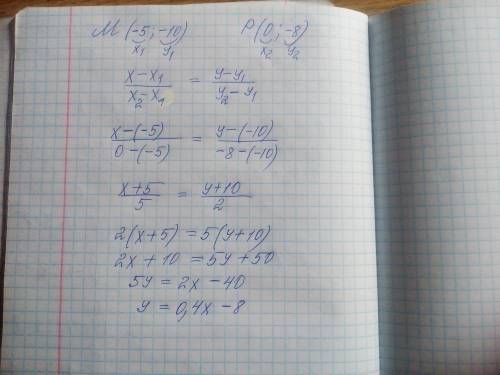 M (-5; -10) P(0; -8)
x₁ y₁ x₂ y₂
(x-x₁)/(x₂-x₁) = (y-y₁)/(y₂-y₁)
(x-(-5))/(0-(-5)) = (y-(-10))/(-8-(-10))
(x+5)/5 = (y+10)/2
2(x+5) = 5(y+10)
2x + 10 = 5y + 50
5y = 2x - 40
y = 0,4x - 8